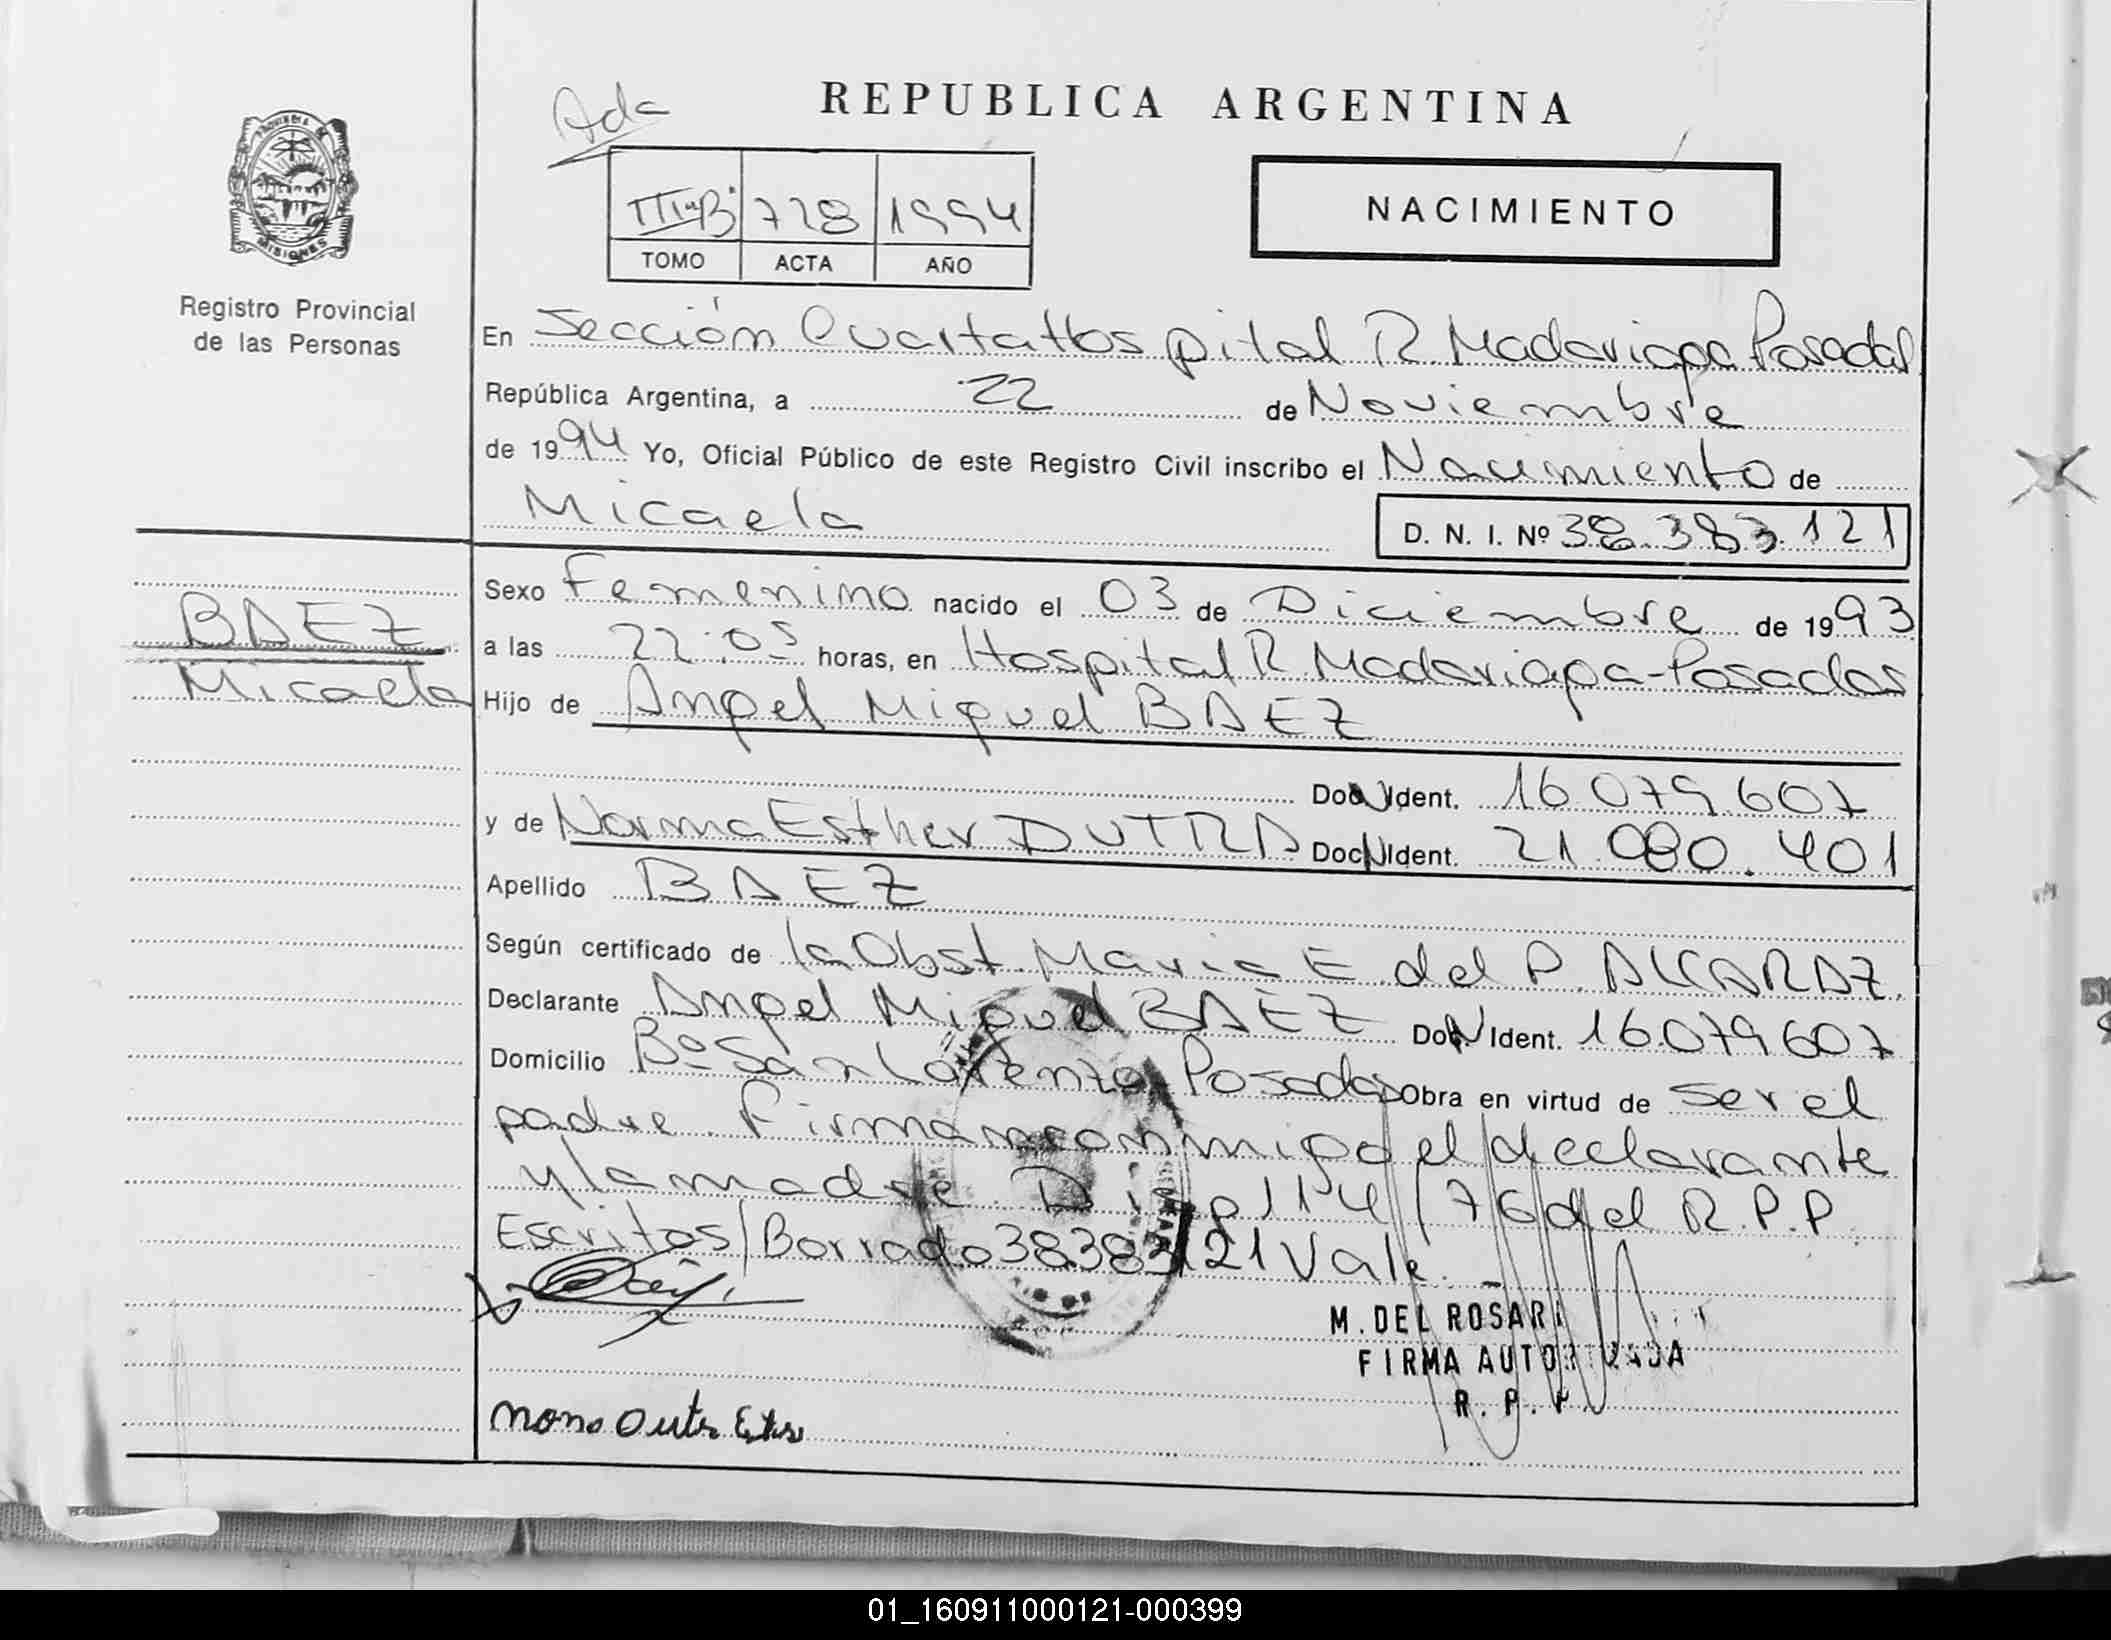 Ada
REPUBLICA ARGENTINA
NACIMIENTO
728 1994
TOMO ACTA AÑO
PROVINCIA DE
MISIONES
Registro Provincial
de las Personas
En Sección Cuarta Hospital R. Madariaga Posadas
República Argentina, a 22 de Noviembre
de 1994 Yo, Oficial Público de este Registro Civil inscribo el Nacimiento de
Micaela
D. N. I. Nº 38.383.121
BAEZ
Micaela
Sexo Femenino nacido el 03 de Diciembre de 1993
a las 22:05 horas, en Hospital R. Madariaga-Posadas
Hijo de Angel Miguel BAEZ
Ident. 16.079.607
y de Norma Esther DUTRA Ident. 21.080.401
Apellido BAEZ
Según certificado de la Obst. Maria E. del P. ALCARAZ.
Declarante Angel Miguel BAEZ Ident. 16.079607
Domicilio Bº San Lorenzo, Posadas Obra en virtud de ser el
padre. Firman conmigo el declarante
y la madre Disp 114/76 del R.P.P.
Escritos/Borrado 38383121 Vale.-
M. DEL ROSARI
FIRMA AUTORIZADA
R. P. P.
01_160911000121-000399